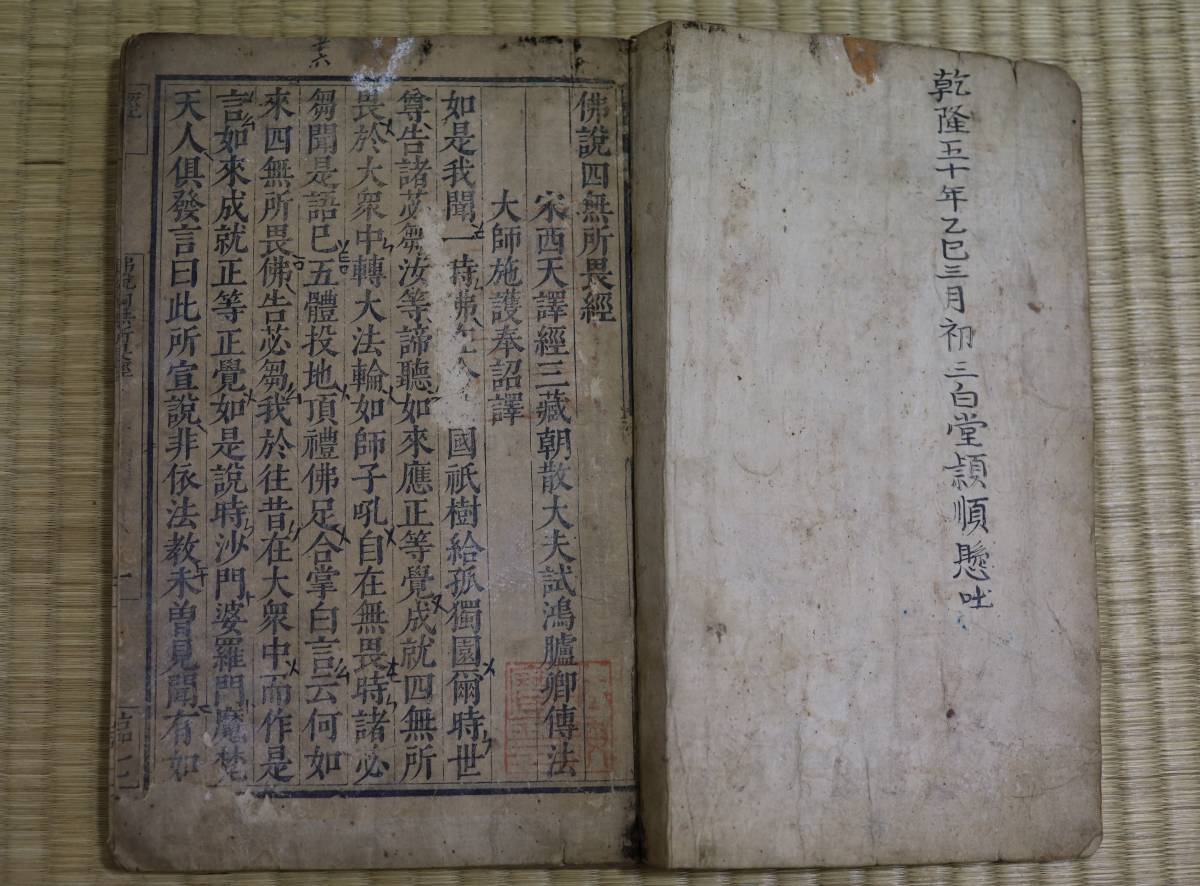 乾隆五十年乙巳三月初三白堂頴順懸吐
佛說四無所畏經
宋西天譯經三藏朝散大夫試鴻臚卿傳法
大師施護奉詔譯
如是我聞一時佛在舍國祇樹給孤獨園爾時世
尊告諸苾芻汝等諦聽如來應正等覺成就四無所
畏於大衆中轉大法輪如師子吼自在無畏時諸必
芻聞是語已五體投地頂禮佛足合掌白言云何如
來四無所畏佛告苾芻我於往昔在大衆中而作是
言如來成就正等正覺如是說時沙門婆羅門魔梵
天人俱發言曰此所宣說非依法教未曽見聞有如